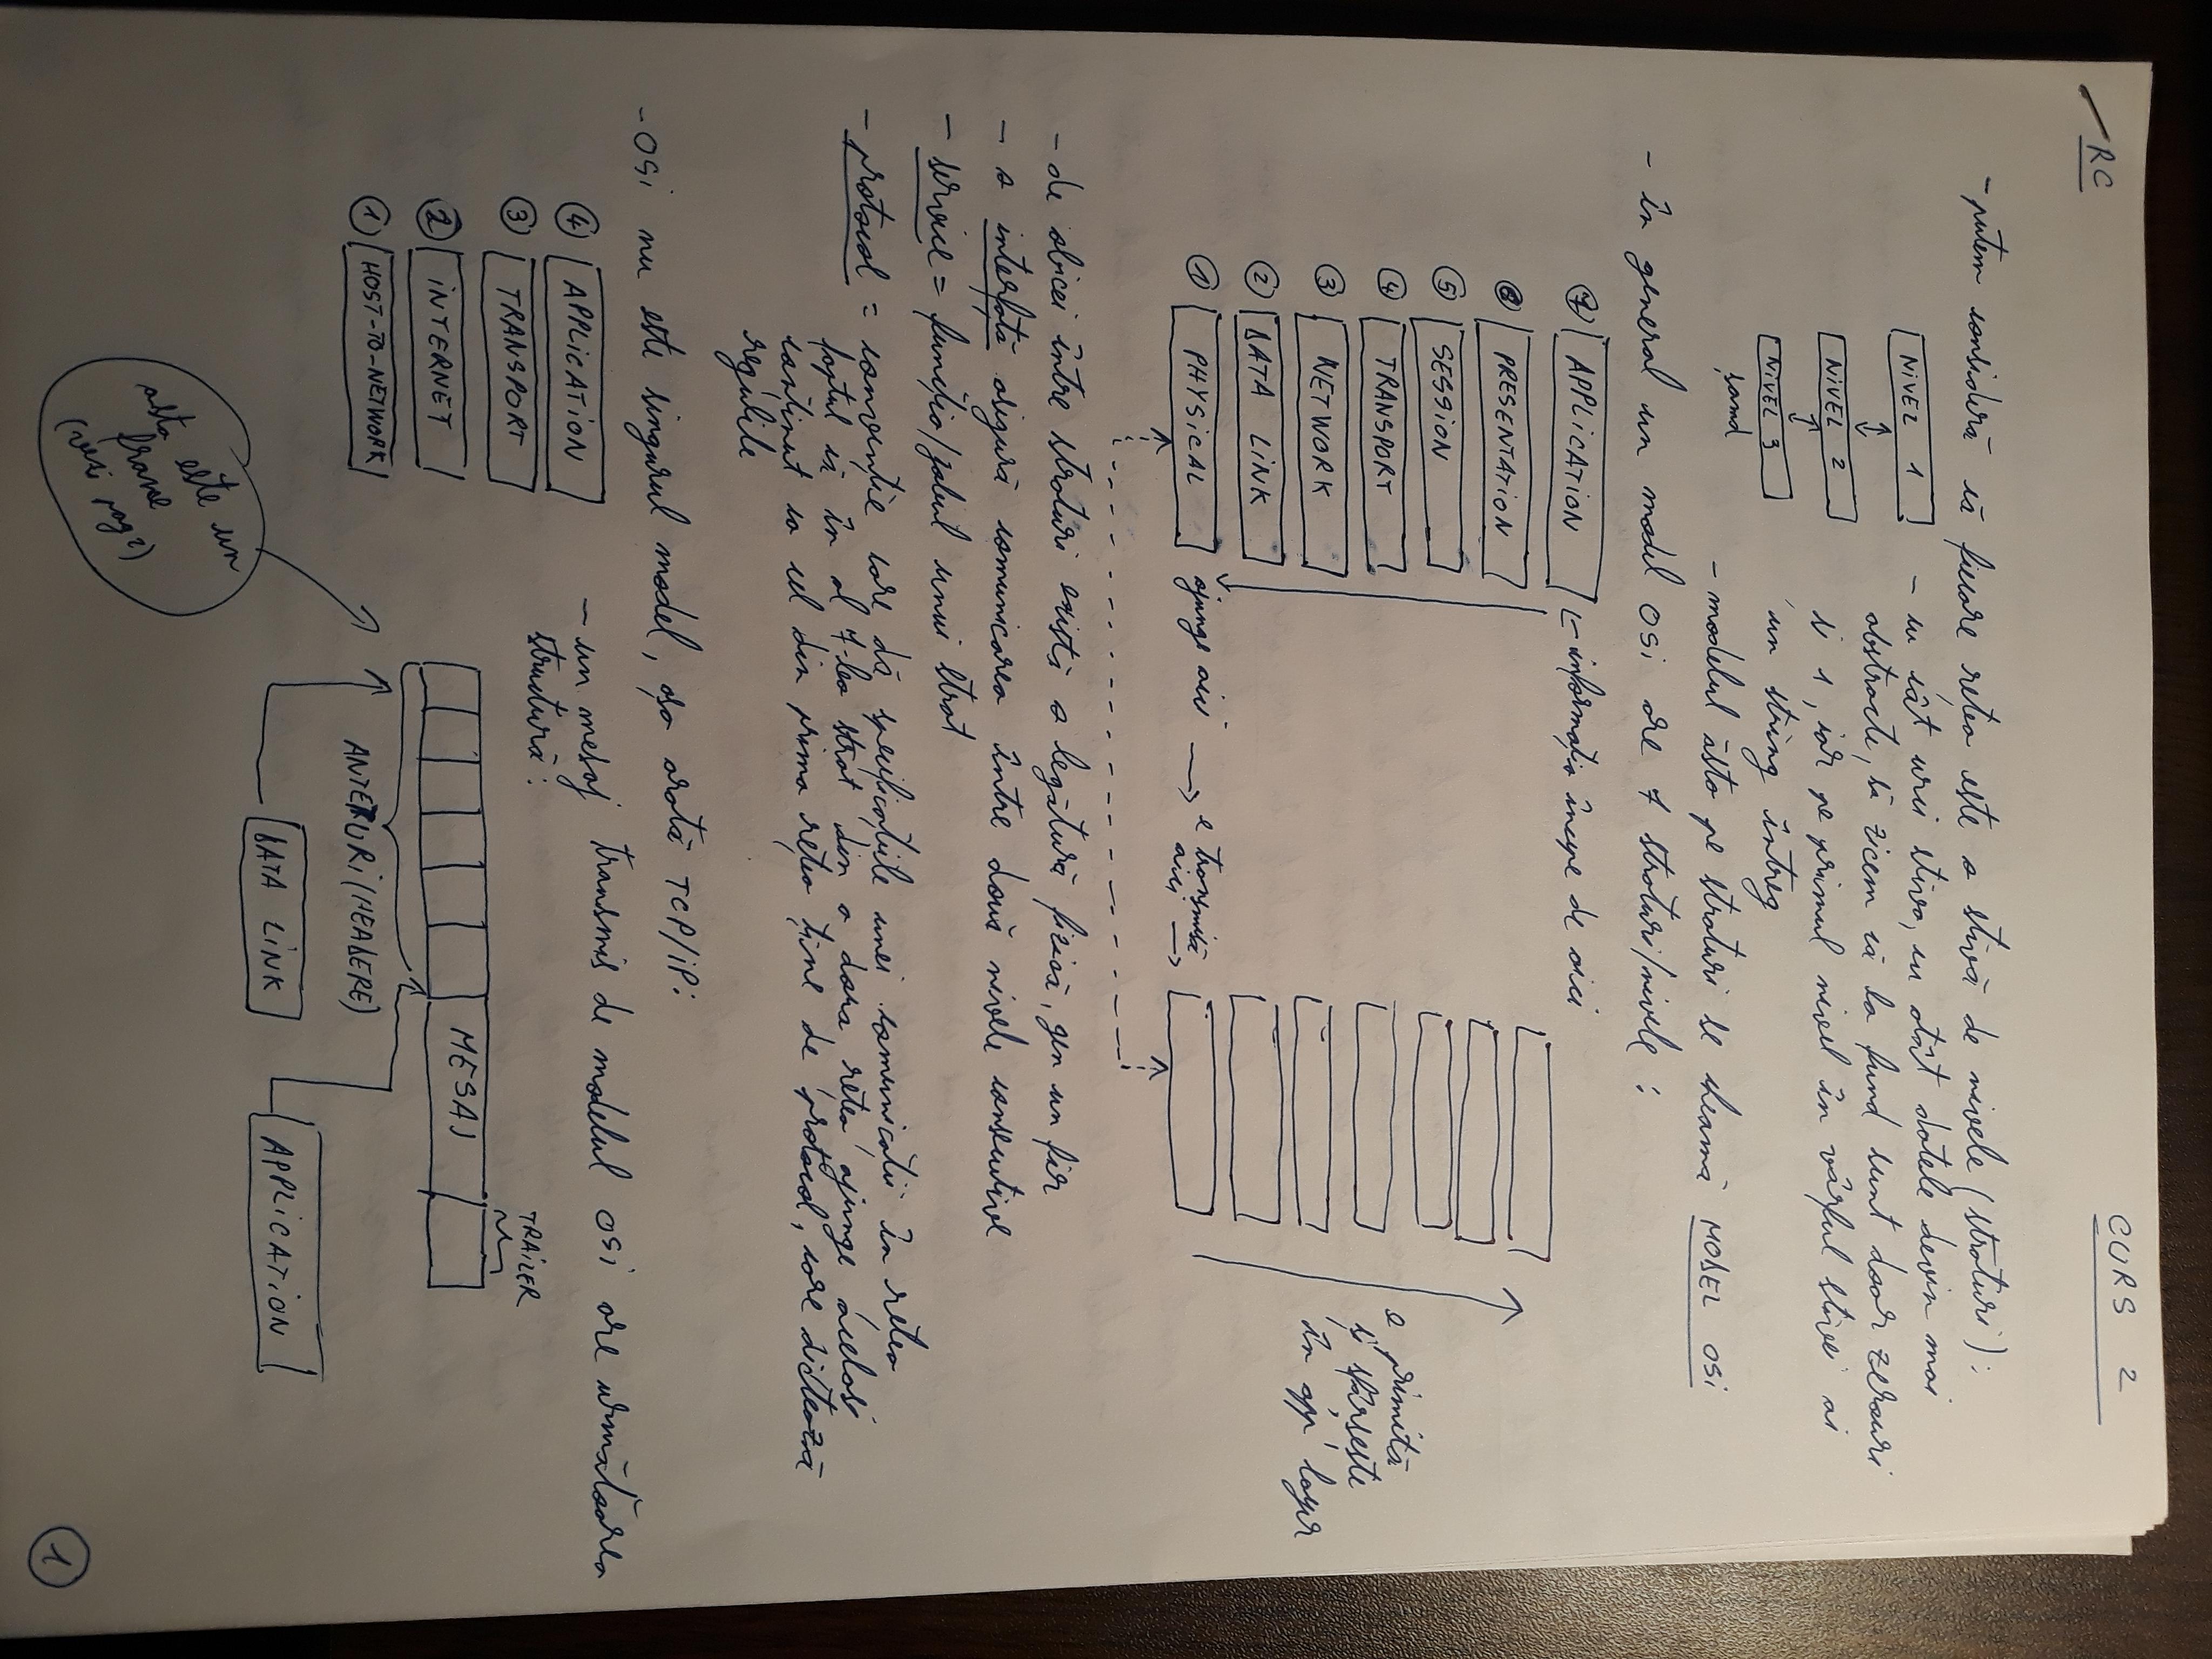 RC
CURS 2
- putem consideră că fiecare rețea este o stivă de nivele (straturi):
NIVEL 1
NIVEL 2
NIVEL 3
șamd
- cu cât urci stiva, cu atât datele devin mai
abstracte, să zicem că la fund sunt doar zerouri
și 1, iar pe primul nivel în vârful stivei ai
un string întreg
- modelul ăsta pe straturi se cheamă MODEL OSI
- în general un model OSI are 7 straturi/nivele:
7 APPLICATION ← informația începe de aici
6 PRESENTATION
5 SESSION
4 TRANSPORT
3 NETWORK
2 DATA LINK
1 PHYSICAL ajunge aici → e transmisă
aici →
e primită
și sfârșește
în app layer
- de obicei între straturi există o legătură fizică, gen un fir
- o interfață asigură comunicarea între două nivele consecutive
- service = funcția/jobul unui strat
- protocol = convenție care dă specificațiile unei comunicații în rețea
faptul că în al 7-lea strat din a doua rețea ajunge același
conținut ca cel din prima rețea ține de protocol, care dictează
regulile
- OSI nu este singurul model, așa arată TCP/IP:
4 APPLICATION
3 TRANSPORT
2 INTERNET
1 HOST-TO-NETWORK
- un mesaj transmis de modelul OSI are următoarea
structură:
TRAILER
MESAJ
ANTETURI (HEADERE)
DATA LINK
APPLICATION
asta este un
frame
(vezi pag 2)
1